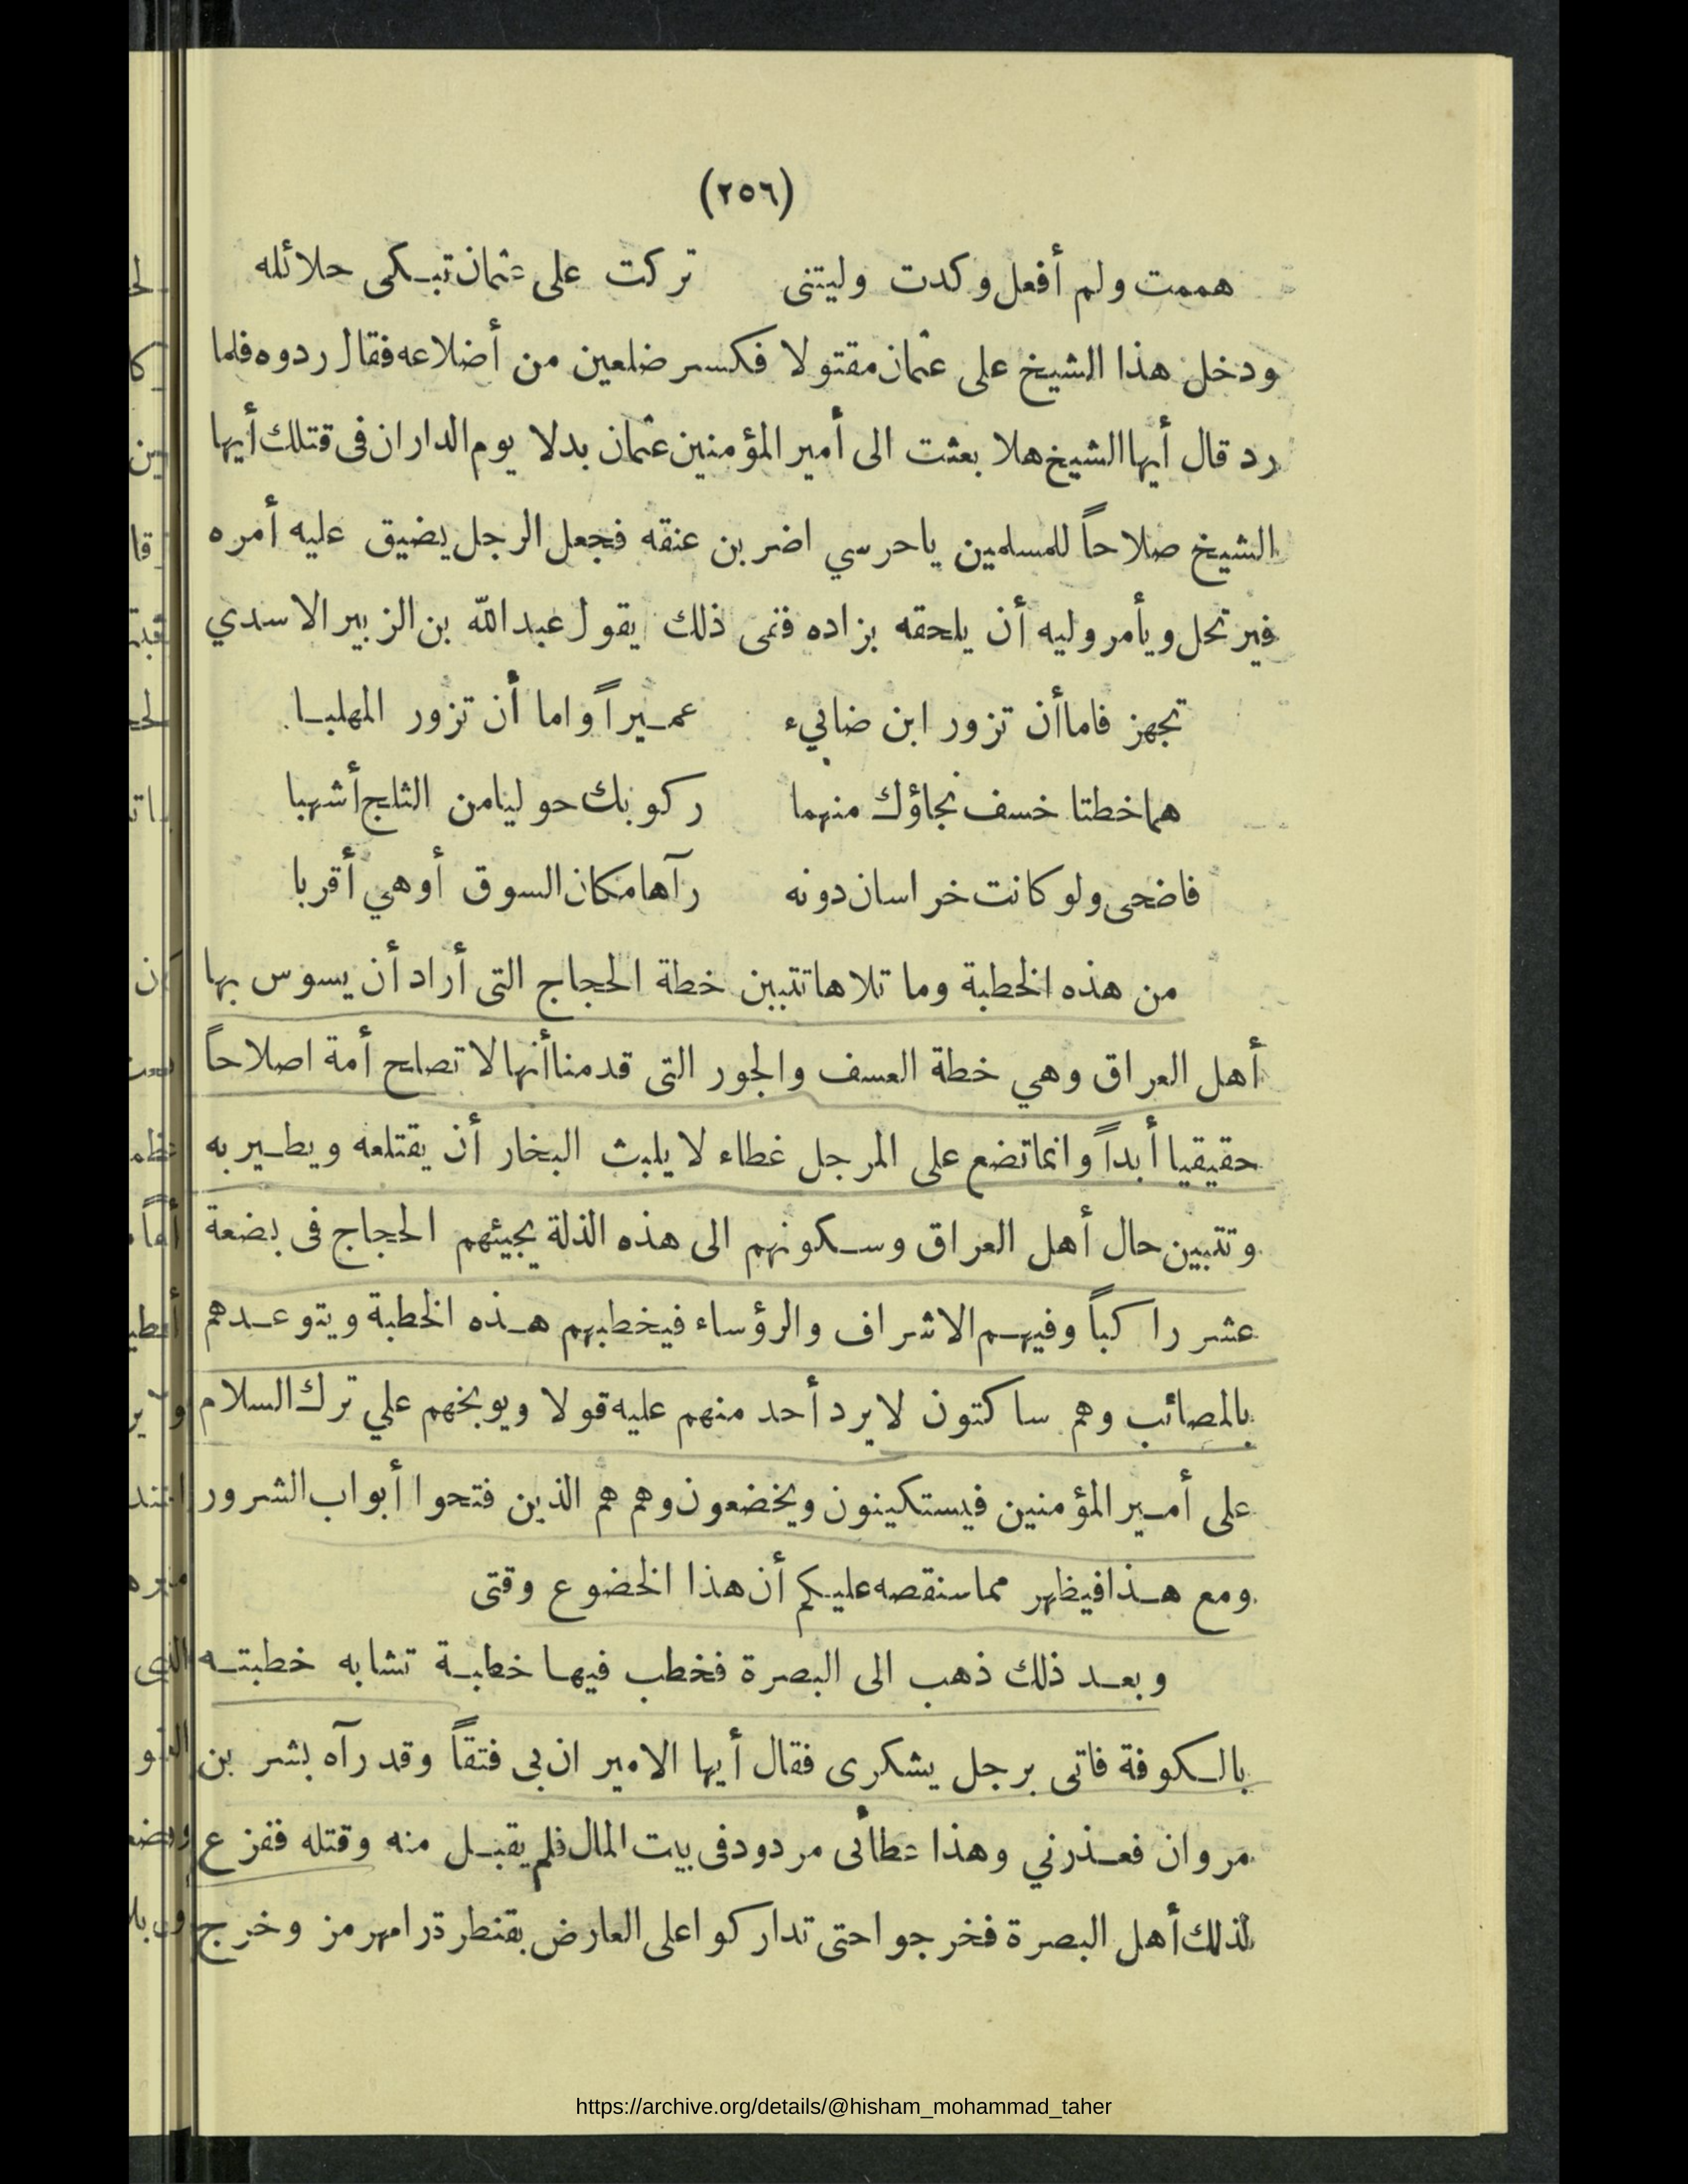 (٢٥٦)
هممت ولم أفعل وكدت وليتنى تركت على عثمان تبكى حلائله
ودخل هذا الشيخ على عثمان مقتولا فكسر ضلعين من أضلاعه فقال ردوه فلما
رد قال أيها الشيخ هلا بعثت الى أمير المؤمنين عثمان بدلا يوم الدار ان فى قتلك أيها
الشيخ صلاحاً للمسلمين ياحرسي اضربن عنقه فجعل الرجل يضيق عليه أمره
فيرتحل ويأمر وليه أن يلحقه بزاده ففى ذلك يقول عبد الله بن الزبير الاسدي
تجهز فاما أن تزور ابن ضابيء عميراً واما أن تزور المهلبا
هما خطتا خسف نجاؤك منهما ركوبك حوليا من الثلج أشهبا
فاضحى ولو كانت خراسان دونه رآها مكان السوق أو هي أقربا
من هذه الخطبة وما تلاها تتبين خطة الحجاج التى أراد أن يسوس بها
أهل العراق وهي خطة العسف والجور التى قدمنا أنها لا تصلح أمة اصلاحاً
حقيقيا أبداً وانما تضع على المرجل غطاء لا يلبث البخار أن يقتلعه ويطير به
وتتبين حال أهل العراق وسكونهم الى هذه الذلة يجيئهم الحجاج فى بضعة
عشر راكباً وفيهم الاشراف والرؤساء فيخطبهم هذه الخطبة ويتوعدهم
بالمصائب وهم ساكتون لا يرد أحد منهم عليه قولا ويوبخهم علي ترك السلام
على أمير المؤمنين فيستكينون ويخضعون وهم هم الذين فتحوا أبواب الشرور
ومع هذا فيظهر مما سنقصه عليكم أن هذا الخضوع وقتى
وبعد ذلك ذهب الى البصرة فخطب فيها خطبة تشابه خطبته
بالكوفة فاتى برجل يشكرى فقال أيها الامير ان بى فتقاً وقد رآه بشر بن
مروان فعذرني وهذا عطأئى مردود فى بيت المال فلم يقبل منه وقتله ففزع
لذلك أهل البصرة فخرجوا حتى تداركوا على العارض بقنطرة رامهرمز وخرج
https://archive.org/details/@hisham_mohammad_taher